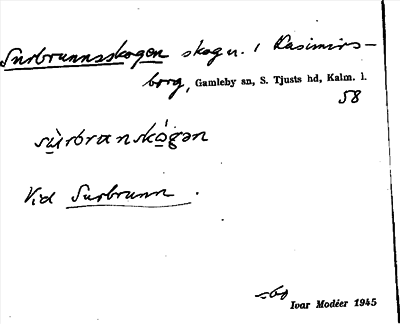 Surbrunnsskogen skog n. i Kasimirs-
borg, Gamleby sn, S. Tjusts hd, Kalm. l.
58
sùrbranskǫ́gən
Vid Surbrunn.
Ivar Modéer 1945